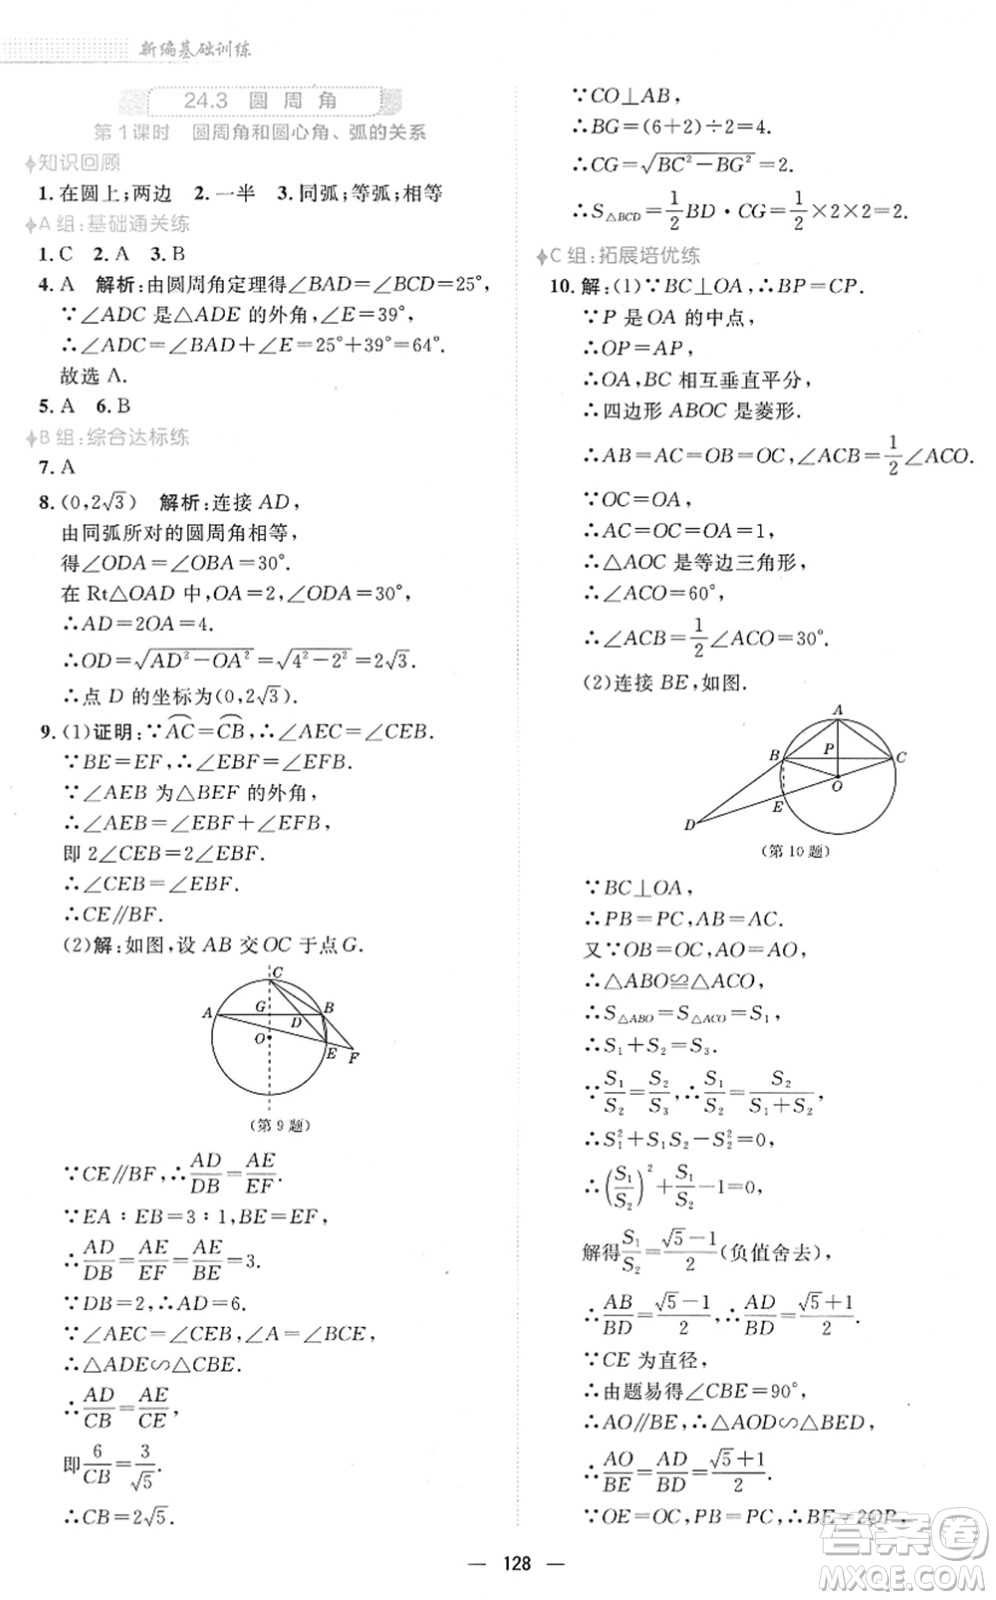 新编基础训练
24.3 圆周角
第1课时 圆周角和圆心角、弧的关系
知识回顾
1. 在圆上;两边 2. 一半 3. 同弧;等弧;相等
A 组:基础通关练
1. C 2. A 3. B
4. A 解析:由圆周角定理得∠BAD=∠BCD=25°,
∵∠ADC 是△ADE 的外角,∠E=39°,
∴∠ADC=∠BAD+∠E=25°+39°=64°.
故选 A.
5. A 6. B
B 组:综合达标练
7. A
8. (0,2√3) 解析:连接 AD,
由同弧所对的圆周角相等,
得∠ODA=∠OBA=30°.
在 Rt△OAD 中,OA=2,∠ODA=30°,
∴AD=2OA=4.
∴OD=√(AD²-OA²)=√(4²-2²)=2√3.
∴点 D 的坐标为(0,2√3).
9. (1)证明:∵A͡C=C͡B,∴∠AEC=∠CEB.
∵BE=EF,∴∠EBF=∠EFB.
∵∠AEB 为△BEF 的外角,
∴∠AEB=∠EBF+∠EFB,
即 2∠CEB=2∠EBF.
∴∠CEB=∠EBF.
∴CE∥BF.
(2)解:如图,设 AB 交 OC 于点 G.
C
A G B
D
O
E F
(第 9 题)
∵CE∥BF,∴AD/DB=AE/EF.
∵EA∶EB=3∶1,BE=EF,
∴AD/DB=AE/EF=AE/BE=3.
∵DB=2,∴AD=6.
∵∠AEC=∠CEB,∠BAE=∠BCE,
∴△ADE∽△CBE.
∴AD/CB=AE/CE,
即6/CB=3/√5.
∴CB=2√5.
∵CO⊥AB,
∴BG=(6+2)÷2=4.
∴CG=√(BC²-BG²)=2.
∴S△BCD=1/2BD·CG=1/2×2×2=2.
C 组:拓展培优练
10. 解:(1)∵BC⊥OA,∴BP=CP.
∵P 是 OA 的中点,
∴OP=AP,
∴OA,BC 相互垂直平分,
∴四边形 ABOC 是菱形.
∴AB=AC=OB=OC,∠ACB=1/2∠ACO.
∵OC=OA,
∴AC=OC=OA=1,
∴△AOC 是等边三角形,
∴∠ACO=60°,
∴∠ACB=1/2∠ACO=30°.
(2)连接 BE,如图.
A
B P C
O
E
D
(第 10 题)
∵BC⊥OA,
∴PB=PC,AB=AC.
又∵OB=OC,AO=AO,
∴△ABO≌△ACO,
∴S△ABO=S△ACO=S₁,
∴S₁+S₂=S₃.
∵S₁/S₂=S₂/S₃,∴S₁/S₂=S₂/(S₁+S₂),
∴S₁²+S₁S₂-S₂²=0,
∴(S₁/S₂)²+S₁/S₂-1=0,
解得S₁/S₂=(√5-1)/2(负值舍去),
∴AB/BD=(√5-1)/2,∴AD/BD=(√5+1)/2.
∵CE 为直径,
∴由题易得∠CBE=90°,
∴AO∥BE,∴△AOD∽△BED,
∴AO/BE=AD/BD=(√5+1)/2.
∵OE=OC,PB=PC,∴BE=2OP,
— 128 —
答案圈
MXQE.COM